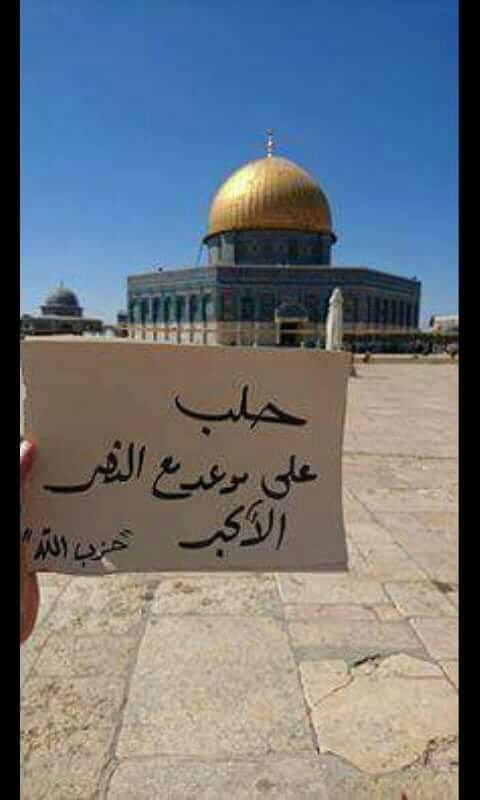 حلب
على موعد مع النصر
الأكبر
"حزب الله"